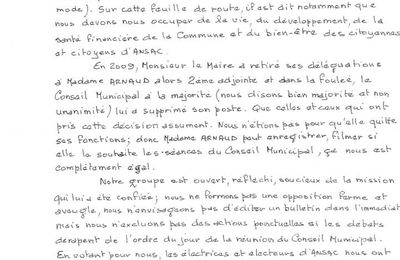 mode). Sur cette feuille de route, il est dit notamment que
nous devons nous occuper de la vie, du développement, de la
santé financière de la Commune et du bien-être des citoyennes
et citoyens d'ANSAC.
En 2009, Monsieur le Maire a retiré ses délégations
à Madame ARNAUD alors 2ème adjointe et dans la foulée, le
Conseil Municipal à la majorité (nous disons bien majorité et non
unanimité) lui a supprimé son poste. Que celles et ceux qui ont
pris cette décision assument. Nous n'étions pas pour qu'elle quitte
ses fonctions; donc Madame ARNAUD peut enregistrer, filmer si
elle le souhaite les séances du Conseil Municipal, ça nous est
complètement égal.
Notre groupe est ouvert, réfléchi, soucieux de la mission
qui lui a été confiée; nous ne formons pas une opposition ferme et
aveugle, nous n'envisageons pas d'éditer un bulletin dans l'immédiat
mais nous n'excluons pas des actions ponctuelles si les débats
dérapent de l'ordre du jour de la réunion du Conseil Municipal.
En votant pour nous, les électrices et électeurs d'ANSAC nous ont